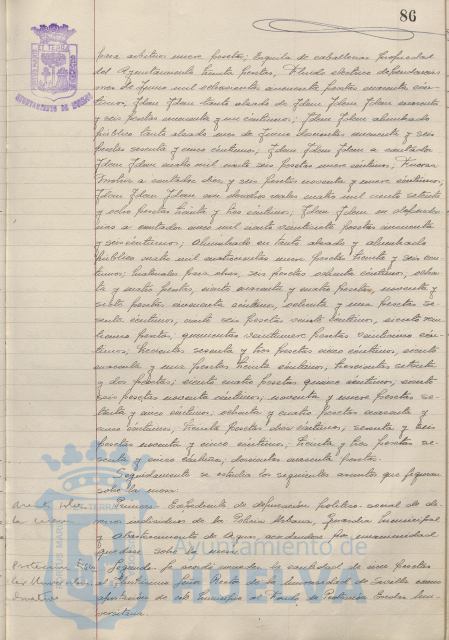 86
para arbitrios nueve pesetas, Esquila de caballerías propiedad
del Ayuntamiento treinta pesetas, Fluido eléctrico dependencias
mes de Junio mil ochocientas cincuenta pesetas cuarenta cén-
timos, Idem Idem tanto alzado de Idem Idem Idem cuarenta
y seis pesetas cincuenta y un céntimos; Idem Idem alumbrado
público tanto alzado mes de Junio doscientas cincuenta y seis
pesetas sesenta y cinco céntimos, Idem Idem Idem a contador
Idem Idem cuatro mil ciento seis pesetas nueve céntimos, Fuerza
Motriz a contador diez y seis pesetas noventa y nueve céntimos,
Idem Idem Idem
y ocho pesetas treinta y tres céntimos; Idem Idem en
a contador cinco mil ciento veintisiete pesetas cincuenta
y seis céntimos; alumbrado en tanto alzado y alumbrado
público cuatro mil cuatrocientas nueve pesetas treinta y seis cén-
timos; materiales para obras, seis pesetas ochenta céntimos, ochen-
ta y cuatro pesetas, ciento cuarenta y cuatro pesetas, noventa y
siete pesetas cincuenta céntimos, setenta y una pesetas se-
senta céntimos, ciento seis pesetas veinte céntimos, ciento vein-
pesetas; quinientas veintinueve pesetas veinticinco cén-
timos; trescientas sesenta y tres pesetas cinco céntimos, ciento
cincuenta y una pesetas treinta céntimos, trescientas setenta
y dos pesetas; ciento cuatro pesetas quince céntimos, ciento
seis pesetas noventa céntimos; noventa y nueve pesetas se-
tenta y cinco céntimos; ochenta y cuatro pesetas cuarenta y
cinco céntimos, treinta pesetas diez céntimos; sesenta y seis
pesetas noventa y cinco céntimos; treinta y tres pesetas se-
senta y cinco céntimos, doscientas cincuenta pesetas.
Seguidamente se estudia los siguientes asuntos que figuran
sobre la mesa:
Primero. Expediente de depuración político-social de di-
versos individuos de la Policía Urbana, Guardia Municipal
y Abastecimiento de Aguas, acordándose por unanimidad
quedase sobre la mesa.
Segundo. Se acordó conceder la cantidad de cien pesetas
al Ilustrísimo Señor Rector de la Universidad de Sevilla como
aportación de este Municipio al Fondo de Protección Escolar Uni-
versitaria.
sobre
la mesa
Protección Esco-
lar Universitaria
Donativo
AYUNTAMIENTO DE HUELVA
Ayuntamiento de